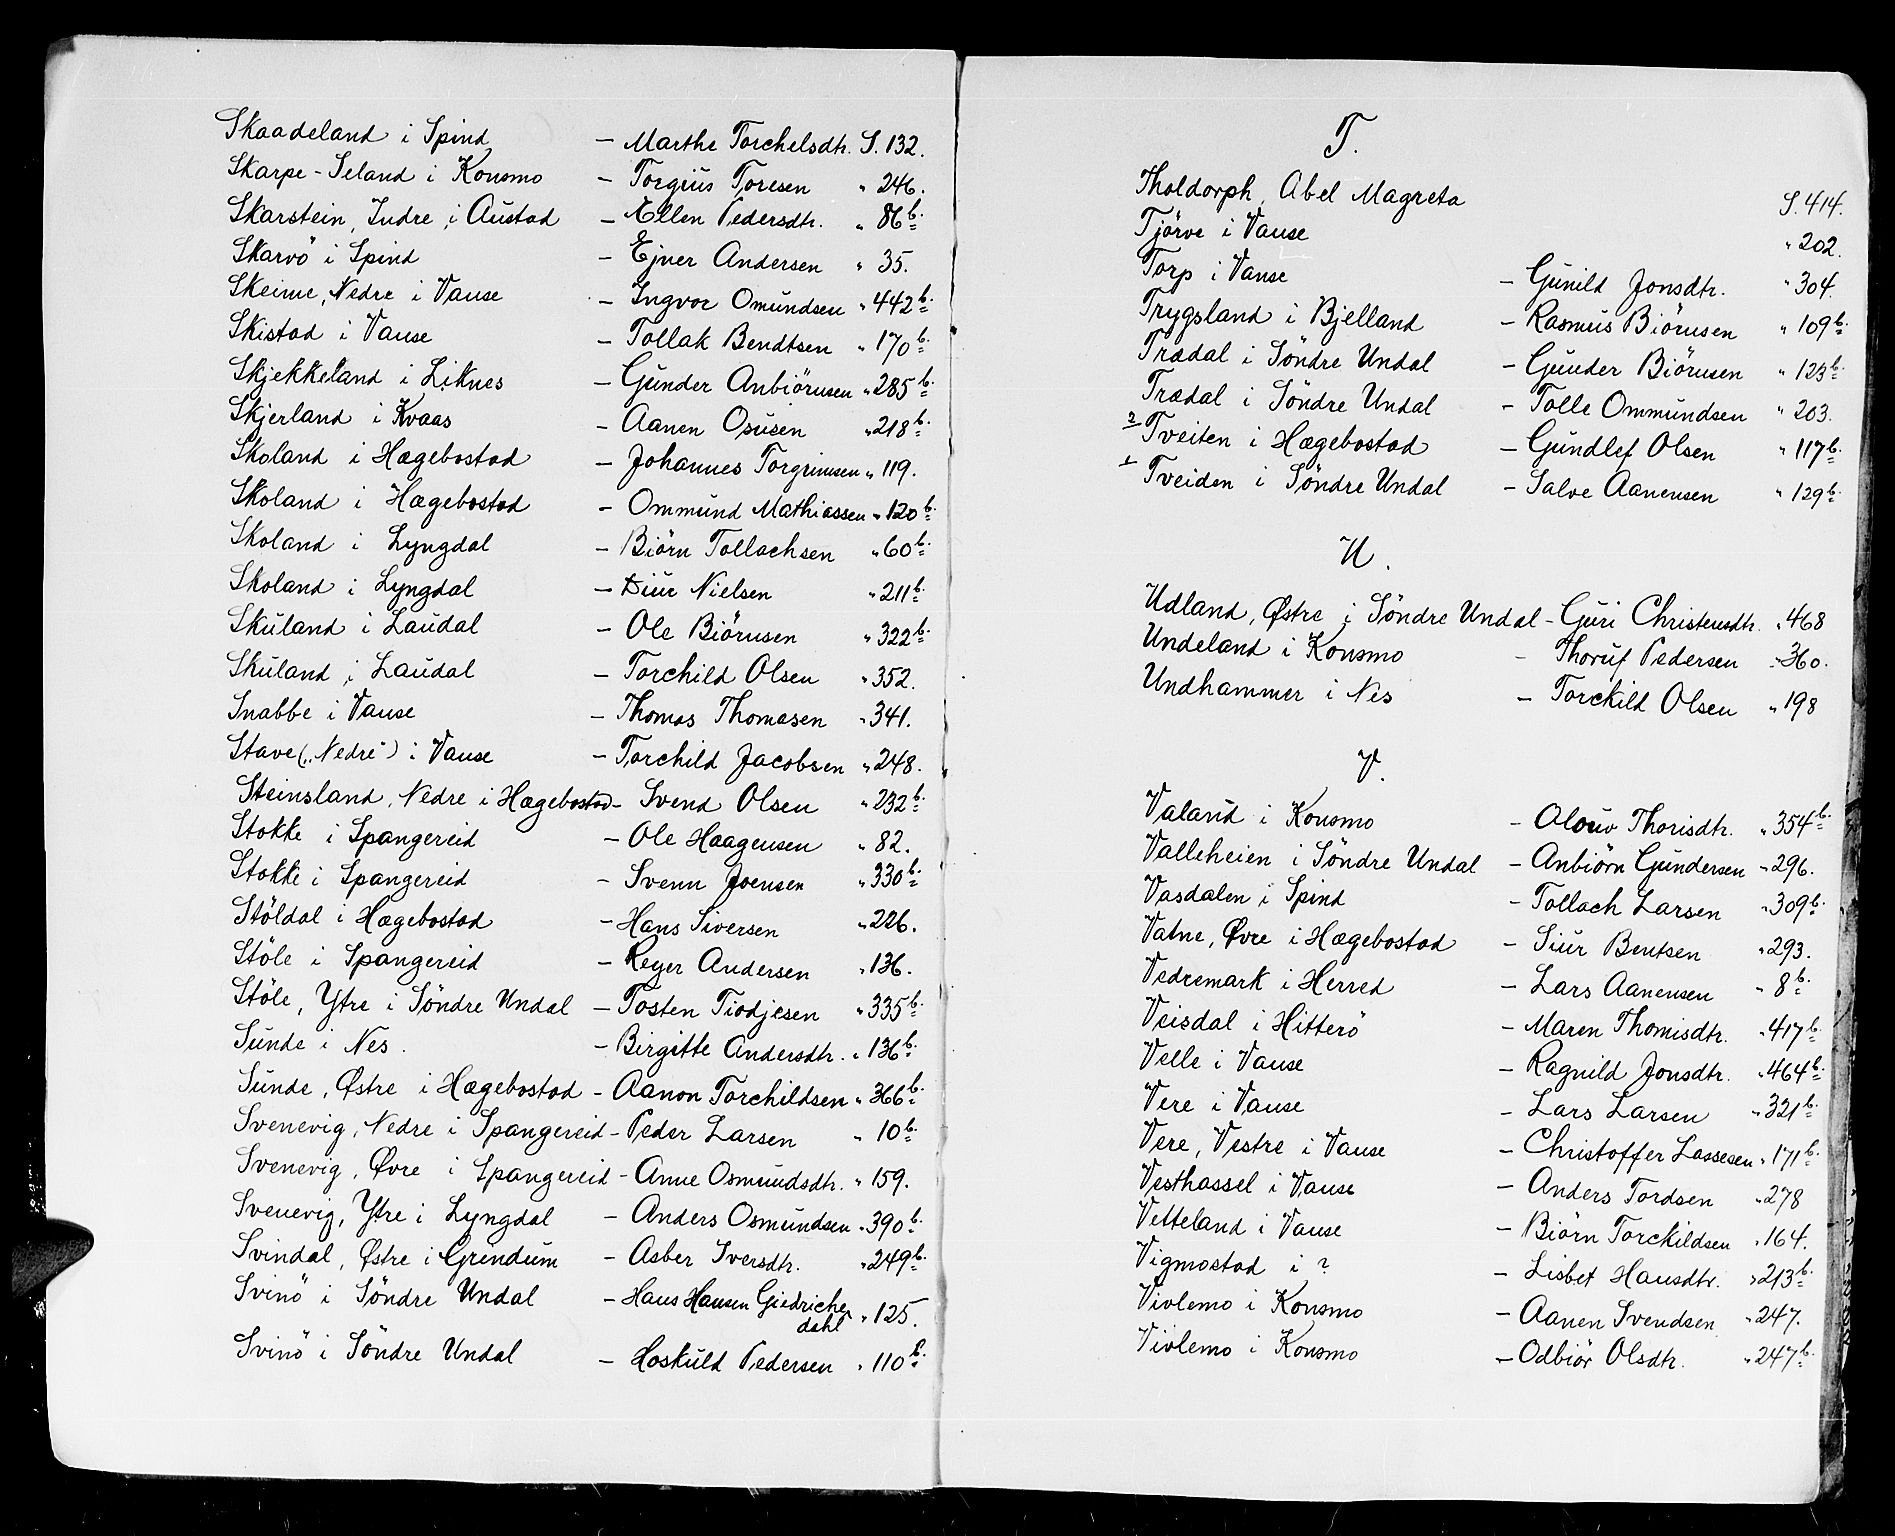 Skaadeland i Spind — Marthe Torchelsdtr. S. 132.
Skarpe-Seland i Konsmo — Torgius Toresen " 246.
Skarstein, Indre, i Austad — Ellen Pedersdtr. " 86 b.
Skarvö i Spind — Ejner Andersen " 35.
Skeime, Nedre i Vanse — Ingvor Omundsen " 442 b.
Skistad i Vanse — Tollak Bendtsen " 170 b.
Skjekkeland i Liknes — Gunder Anbiörnsen " 285 b.
Skjerland i Kvaas — Aanen Osusen " 218 b.
Skoland i Hægebostad — Johannes Torgrimsen " 119.
Skoland i Hægebostad — Ommund Mathiassen " 120 b.
Skoland i Lyngdal — Biörn Tollachsen " 60 b.
Skoland i Lyngdal — Siur Nielsen " 211 b.
Skuland i Laudal — Ole Biörnsen " 322 b.
Skuland i Laudal — Torchild Olsen " 352.
Snabbe i Vanse — Thomas Thomasen " 341.
Stave („Nedre") i Vanse — Torchild Jacobsen " 248.
Steinsland, Nedre i Hægebostad — Svend Olsen " 232 b.
Stokke i Spangereid — Ole Haagensen " 82.
Stokke i Spangereid — Svenn Joensen " 330 b.
Stöldal i Hægebostad — Hans Siversen " 226.
Stöle i Spangereid — Reyer Andersen " 136.
Stöle, Ytre i Söndre Undal — Tosten Tiodjesen " 335 b.
Sunde i Nes. — Birgitte Andersdtr. " 136 b.
Sunde, Østre i Hægebostad — Aanon Torchildsen " 366 b.
Svenevig, Nedre i Spangereid — Peder Larsen " 10 b.
Svenevig, Øvre i Spangereid — Anne Osmundsdtr. " 159.
Svenevig, Ytre i Lyngdal — Anders Osmundsen " 390 b.
Svindal, Østre i Grendum — Asber Iversdtr. " 249 b.
Svinö i Söndre Undal — Hans Hansen Giedriche " 125.
dahl
Svinö i Söndre Undal — Hoskuld Pedersen " 110 b.
T.
Tholdorph, Abel Magreta S. 414.
Tjörve i Vanse " 202.
Torp i Vanse — Gunild Jonsdtr. " 304.
Trygsland i Bjelland — Rasmus Biörnsen " 109 b.
Trædal i Söndre Undal — Gunder Biörnsen " 123 b.
Trædal i Söndre Undal — Tolle Ommundsen " 203.
2 Tveiten i Hægebostad — Gundlef Olsen " 117 b.
1 Tveiden i Söndre Undal — Salve Aanensen " 129 b.
U.
Udland, Østre i Söndre Undal — Guri Christensdtr. " 468
Undeland i Konsmo — Thoruf Pedersen " 360.
Undhammer i Nes — Torckild Olsen " 198
V.
Valand i Konsmo — Olouv Thorisdtr. " 354 b.
Valleheien i Söndre Undal — Anbiörn Gundersen " 296.
Vasdalen i Spind — Tollach Larsen " 309 b.
Vatne, Øvre i Hægebostad — Siur Bentsen " 293.
Vedremark i Herred — Lars Aanensen " 8 b.
Veisdal i Hitterö — Maren Thomisdtr. " 417 b.
Velle i Vanse — Ragnild Jonsdtr. " 464 b.
Vere i Vanse — Lars Larsen " 321 b.
Vere, Vestre i Vanse — Christoffer Lassesen " 171 b.
Vesthassel i Vanse — Anders Tordsen " 278
Vetteland i Vanse — Biörn Torckildsen " 164.
Vigmostad i ? — Lisbet Hansdtr. " 213 b.
Vivlemo i Konsmo — Aanen Svendsen " 247.
Vivlemo i Konsmo — Odbiör Olsdtr. " 247 b.